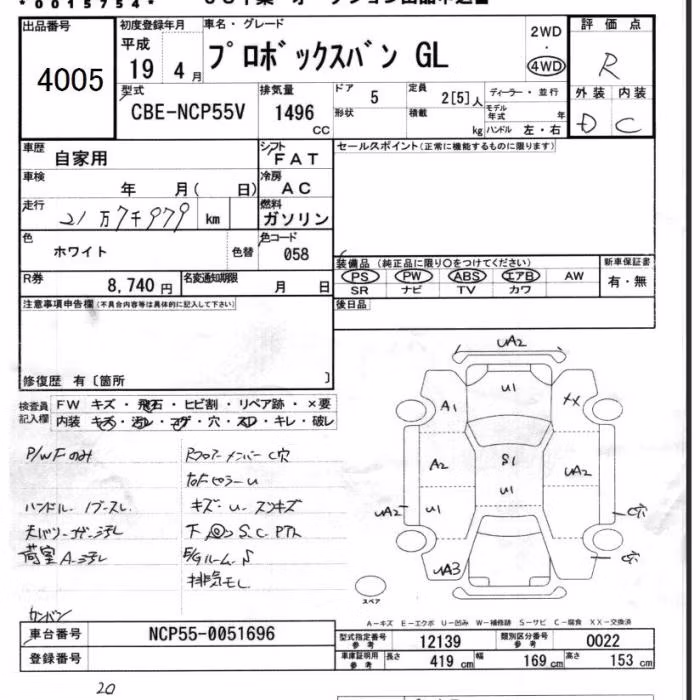 *0015754*
出品番号
4005
初度登録年月
平成
19 4 月
車名・グレード
プロボックスバン GL
2WD
・
4WD
評価点
R
外装 内装
D C
型式
CBE-NCP55V
排気量
1496
CC
ドア
5
形状
定員
2[5]人
積載
kg
ディーラー・並行
モデル年式 年
ハンドル 左・右
車歴
自家用
シフト
FAT
車検
年 月( 日)
冷房
AC
走行
21万7千979 km
燃料
ガソリン
色
ホワイト
色替
色コード
058
R券
8,740 円
名変通知期限
月 日
セールスポイント(正常に機能するものに限ります)
装備品(純正品に限り○をつけてください)
PS PW ABS エアB AW
SR ナビ TV カワ
新車保証書
有・無
後日品
注意事項申告欄(不具合内容等は具体的に記入して下さい)
修復歴 有〔箇所 〕
検査員記入欄
FW キズ・飛石・ヒビ割・リペア跡・×要
内装 キズ・汚レ・コゲ・穴・スレ・キレ・破レ
P/WFのみ
Rフロアーメンバー C穴
ハンドル
キズ・U・スリキズ
荷室 A・汚レ
下 S.C
E/Gルーム S
排気モレ
UA2
U1
A1
XX
A2
S1
U1
UA2
UA2
U1
C穴
C穴
UA3
スペア
A-キズ E-エクボ U-凹み W-補修跡 S-サビ C-腐食 XX-交換済
車台番号
NCP55-0051696
登録番号
型式指定番号 参考
12139
類別区分番号 参考
0022
車庫証明用 参考
長さ 419 cm
幅 169 cm
高さ 153 cm
20